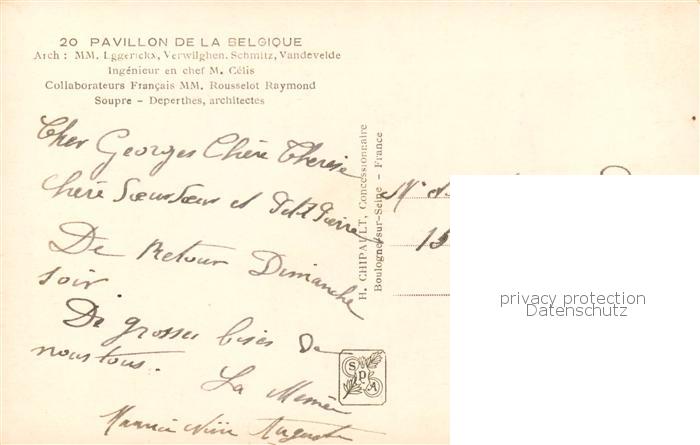 20 PAVILLON DE LA BELGIQUE
Arch : MM. Eggerickx, Verwilghen. Schmitz, Vandevelde
Ingénieur en chef M. Célis
Collaborateurs Français MM. Rousselot Raymond
Soupre - Deperthes, architectes
Cher Georges Chère Therese
Chère Sœur et Petit Pierre
De Retour Dimanche
soir
De grosses bises de
nous tous.
La Mémée
Maurice Auguste
H. CHIPAULT, Concessionnaire
Boulogne-sur-Seine - France
SPA
15
privacy protection
Datenschutz